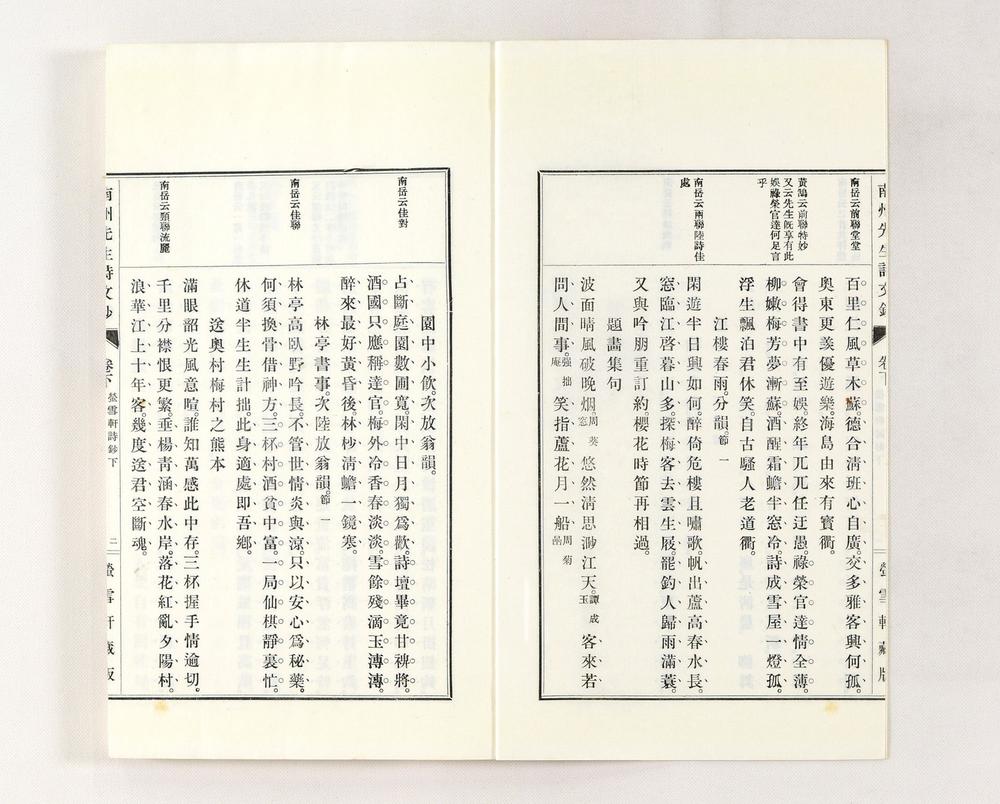 南岳云前聯堂堂
黃鵠云前聯特妙
又云先生旣享有此
娛祿榮官達何足言
乎
南岳云兩聯陸詩佳
處
百里仁風草木蘇德合淸班心自廣交多雅客興何孤
奧東更羨優遊樂海島由來有寶衢
會得書中有至娛終年兀兀任迂愚祿榮官達情全薄
柳嫩梅芳夢漸蘇酒醒霜蟾半窓冷詩成雪屋一燈孤
浮生飄泊君休笑自古騷人老道衢
江樓春雨分韻節一
閑遊半日興如何醉倚危樓且嘯歌帆出蘆高春水長
窓臨江啓暮山多探梅客去雲生屐罷釣人歸雨滿蓑
又與吟朋重訂約櫻花時節再相過
題畫集句
波面晴風破晚烟周葵窓悠然淸思渺江天譚成玉客來若
問人間事强拙庵笑指蘆花月一船周菊嵒
南州先生詩文鈔
卷下
螢雪軒藏版
南岳云佳對
南岳云佳聯
南岳云頸聯流麗
園中小飮次放翁韻
占斷庭園數圃寬閑中日月獨爲歡詩壇畢竟甘裨將
酒國只應稱達官梅外冷香春淡淡雪餘殘滴玉漙漙
醉來最好黃昏後林杪淸蟾一鏡寒
林亭書事次陸放翁韻節一
林亭高臥野吟長不管世情炎與凉只以安心爲秘藥
何須換骨借神方三杯村酒貧中富一局仙棋靜裏忙
休道半生生計拙此身適處卽吾鄕
送奧村梅村之熊本
滿眼韶光風意喧誰知萬感此中存三杯握手情逾切
千里分襟恨更繁垂楊靑涵春水岸落花紅亂夕陽村
浪華江上十年客幾度送君空斷魂
南州先生詩文鈔
卷下
螢雪軒詩鈔下
二
螢雪軒藏版